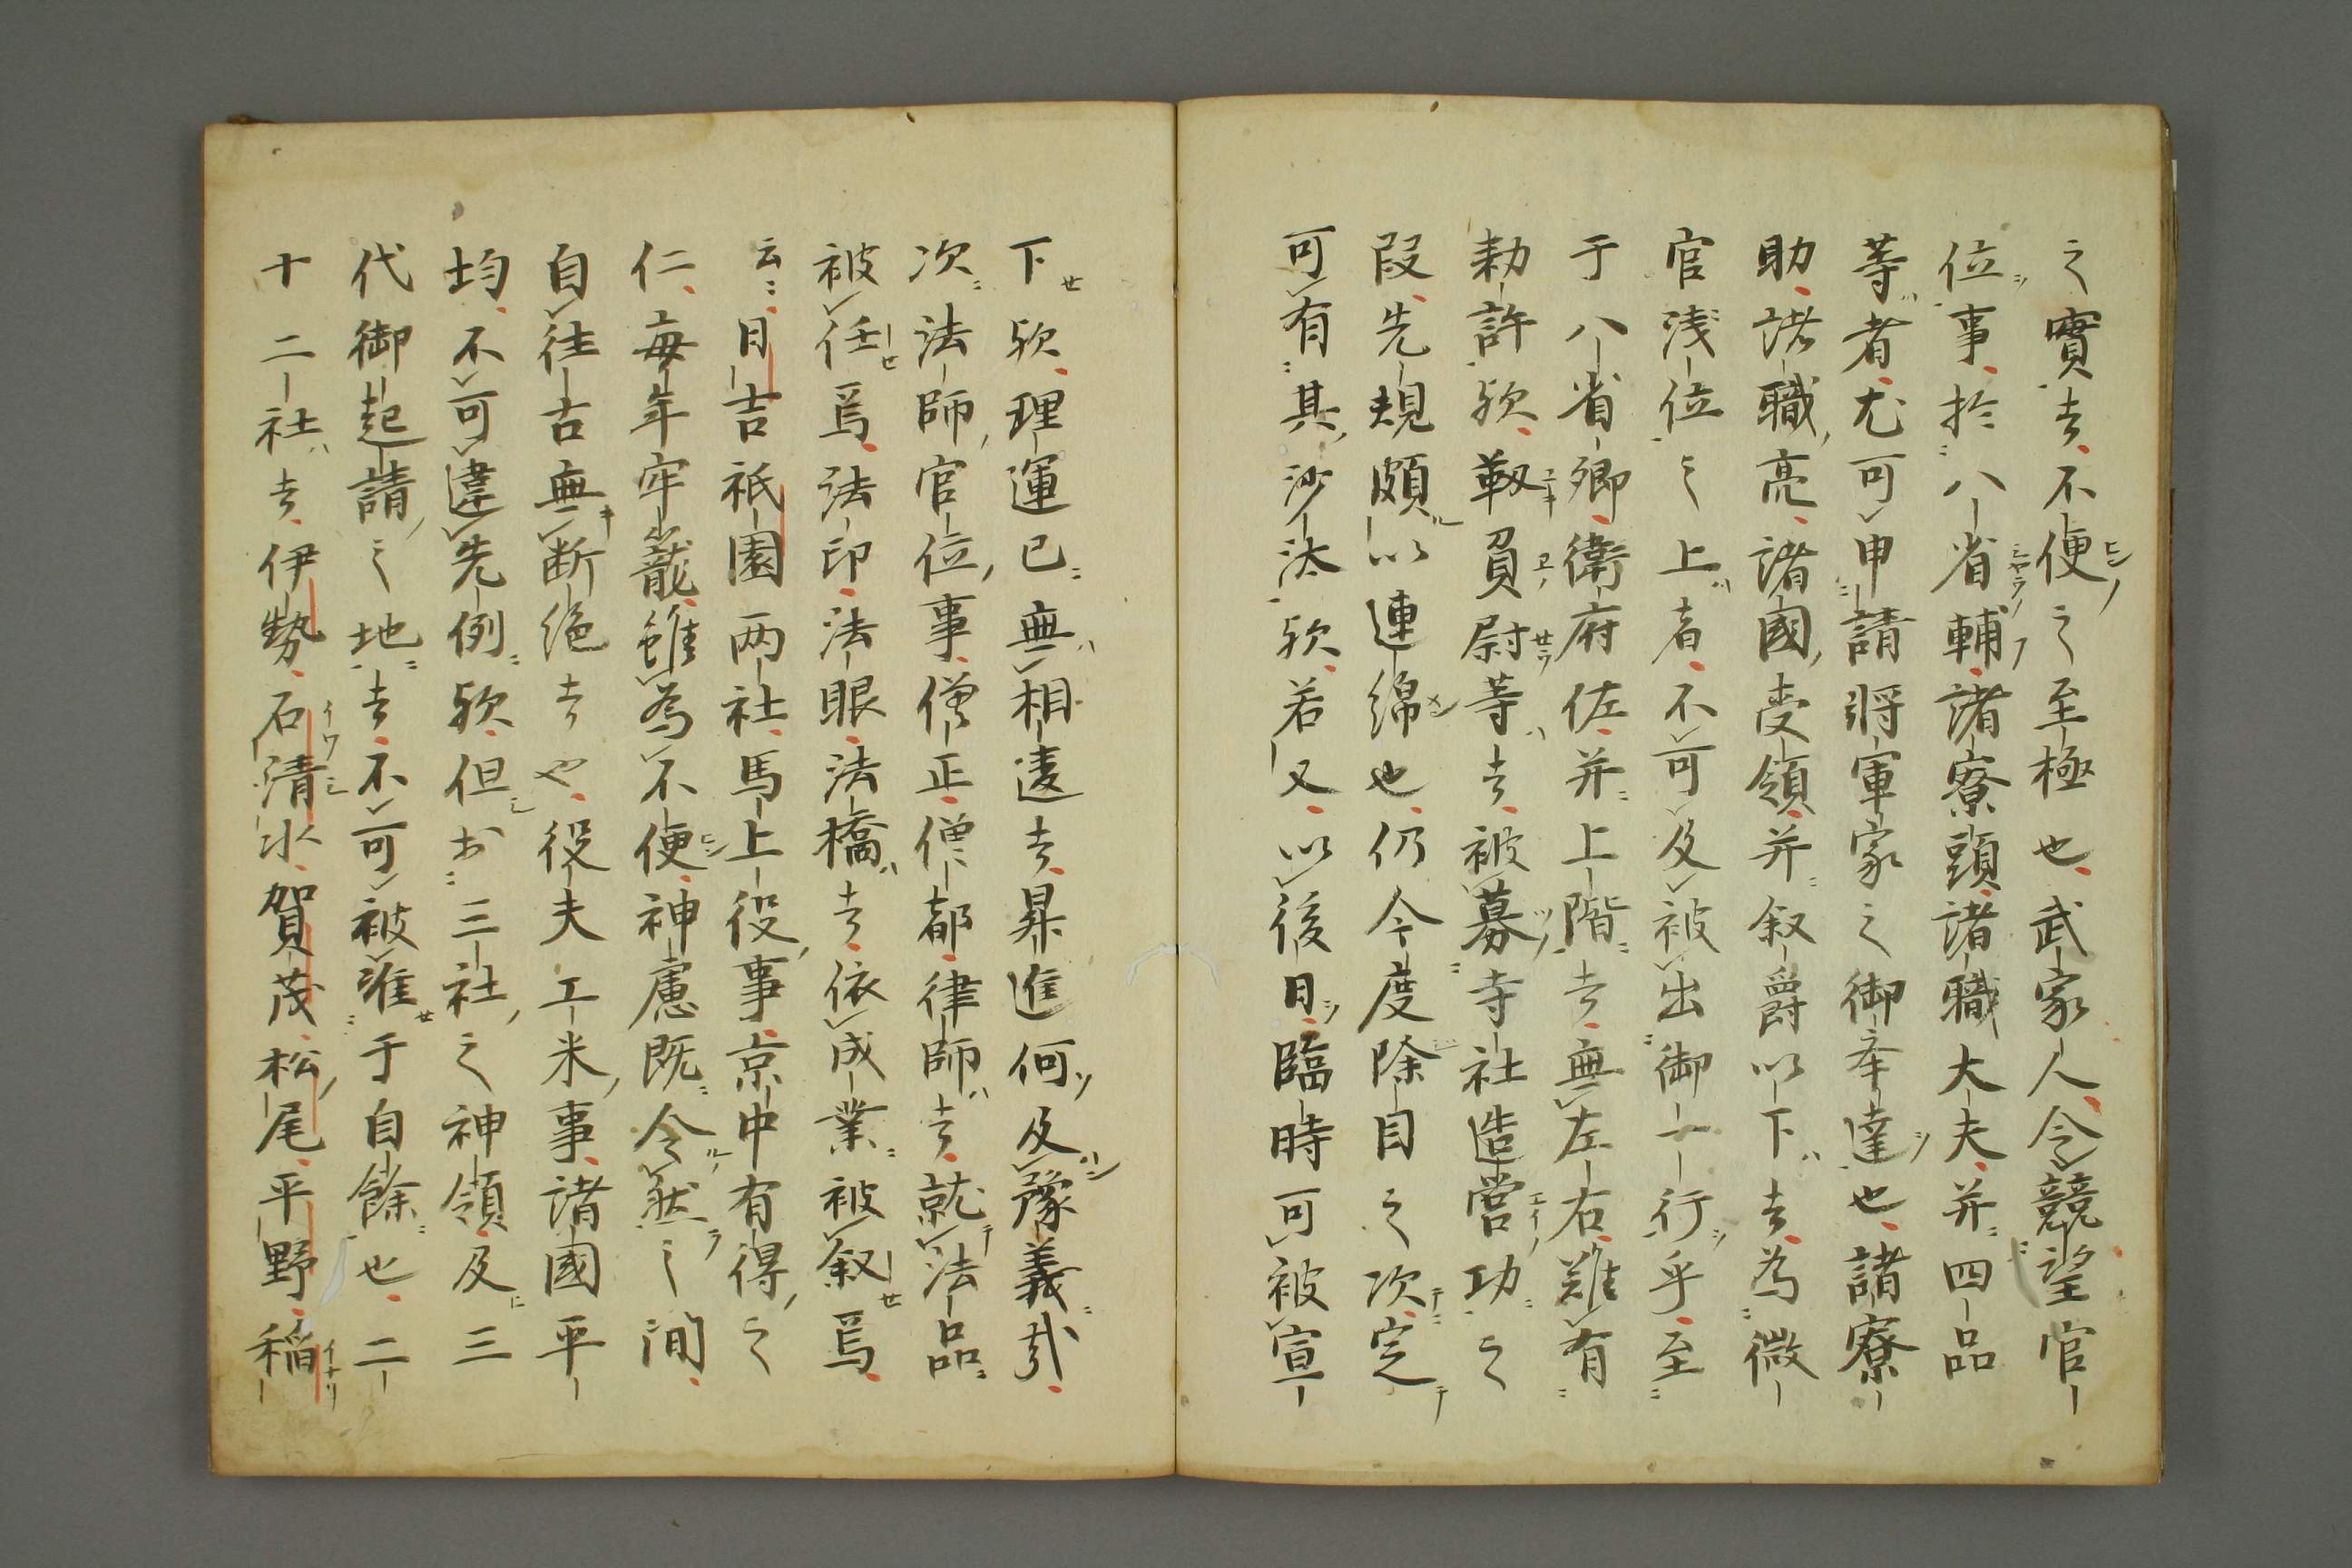 之實者不便之至極也武家人令競望官
位事於八省輔諸寮頭諸職大夫并四品
等者尤可申請将軍家之御奉達也諸寮
助諸職亮諸國受領并叙爵以下者為微
官浅位之上者不可及被出御一行乎至
于八省卿衛府佐并上階者無左右難有
勅許欤靱負尉等者被募寺社造営功之
段先規頗以連綿也仍今度除目之次定
可有其沙汰欤若又以後日臨時可被宣
下欤理運已無相違者昇進何及豫義哉
次法師官位事僧正僧都律師者就法品
被任焉法印法眼法橋者依成業被叙焉
云日吉祇園两社馬上役事京中有得之
仁毎年牢籠雖為不便神慮既令然之間
自往古無断絶者也役夫工米事諸國平
均不可違先例欤但於三社之神領及三
代御起請之地者不可被准于自餘也二
十二社者伊勢石清水賀茂松尾平野稲